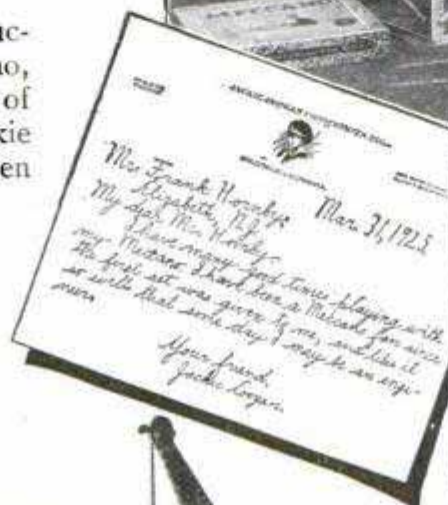 uc-
no,
of
kie
en
MECCANO
Mar. 31, 1925
Mr. Frank Hornby,
Elizabeth, N.J.
My dear Mr. Hornby-
I have many good times playing with
my Meccano. I have been a Meccano fan since
the first set was given to me, and like it
so well that some day I may be an engi-
neer.
Your friend,
Jackie Coogan.